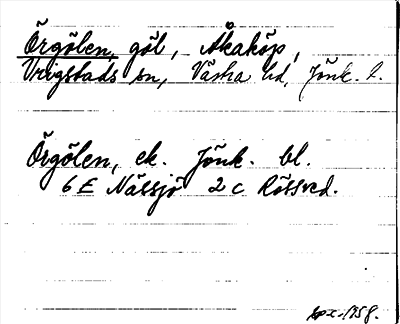 Örgölen, göl, Åkaköp,
Vrigstads sn, Västra hd, Jönk. l.
Örgölen, ek. Jönk. bl.
6 E Nässjö 2 c Rössved.
1958.